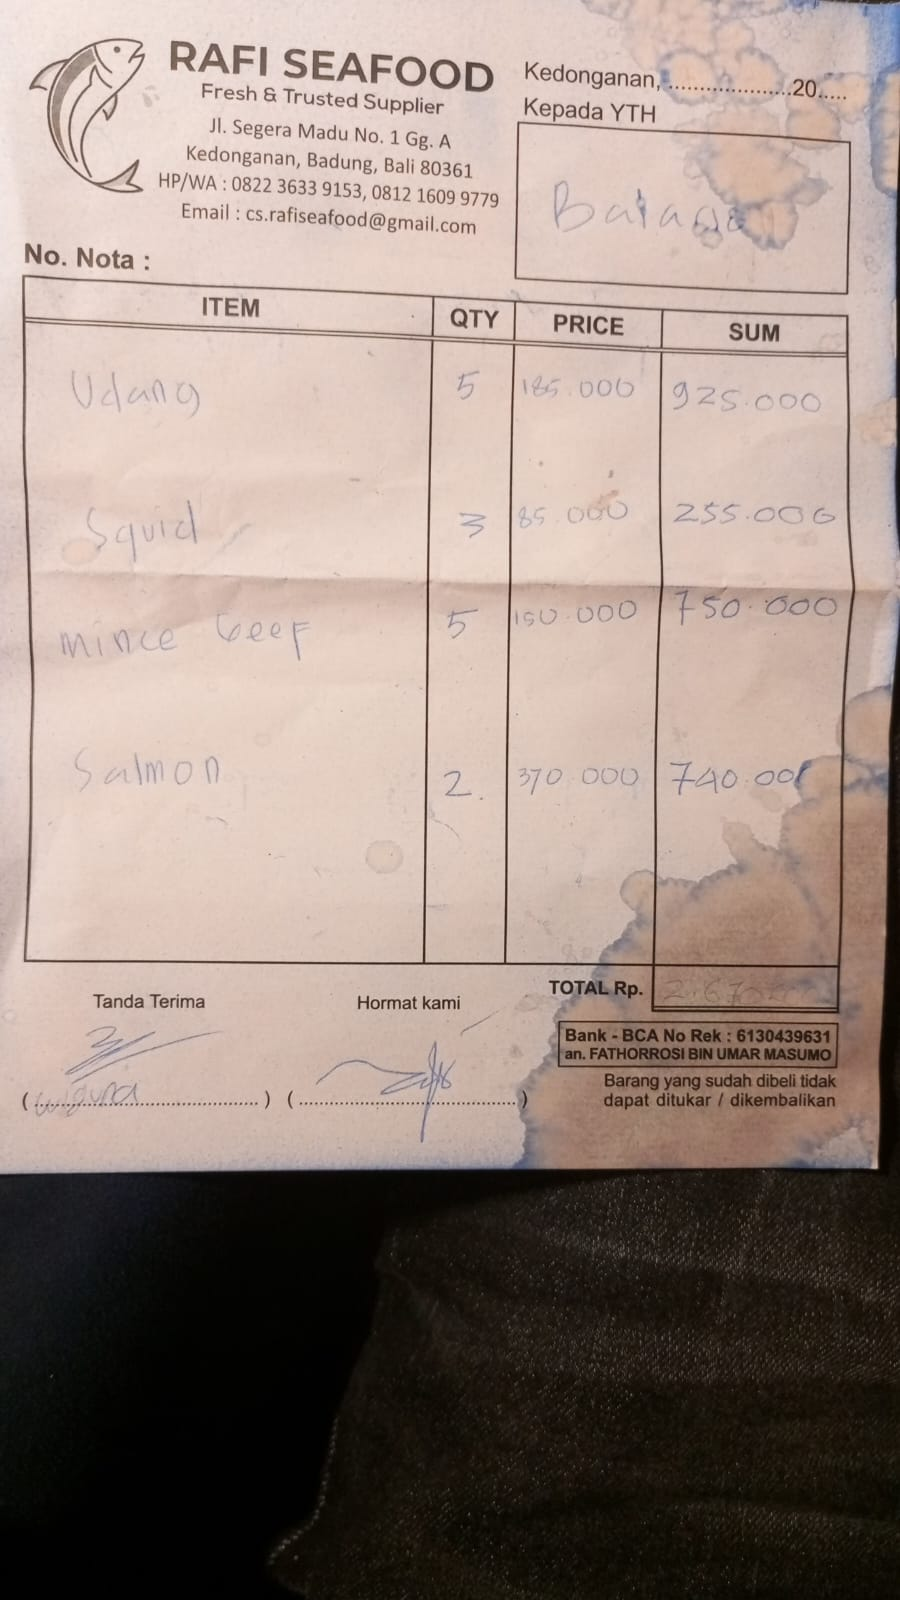 RAFI SEAFOOD
Fresh & Trusted Supplier
Jl. Segera Madu No. 1 Gg. A
Kedonganan, Badung, Bali 80361
HP/WA : 0822 3633 9153, 0812 1609 9779
Email : cs.rafiseafood@gmail.com
Kedonganan, ....................20.....
Kepada YTH
No. Nota :
ITEM QTY PRICE SUM
Udang 5 185.000 925.000
Squid 3 85.000 255.000
mince beef 5 150.000 750.000
Salmon 2. 370.000 740.000
TOTAL Rp.
Tanda Terima Hormat kami
Bank - BCA No Rek : 6130439631
an. FATHORROSI BIN UMAR MASUMO
Barang yang sudah dibeli tidak
dapat ditukar / dikembalikan